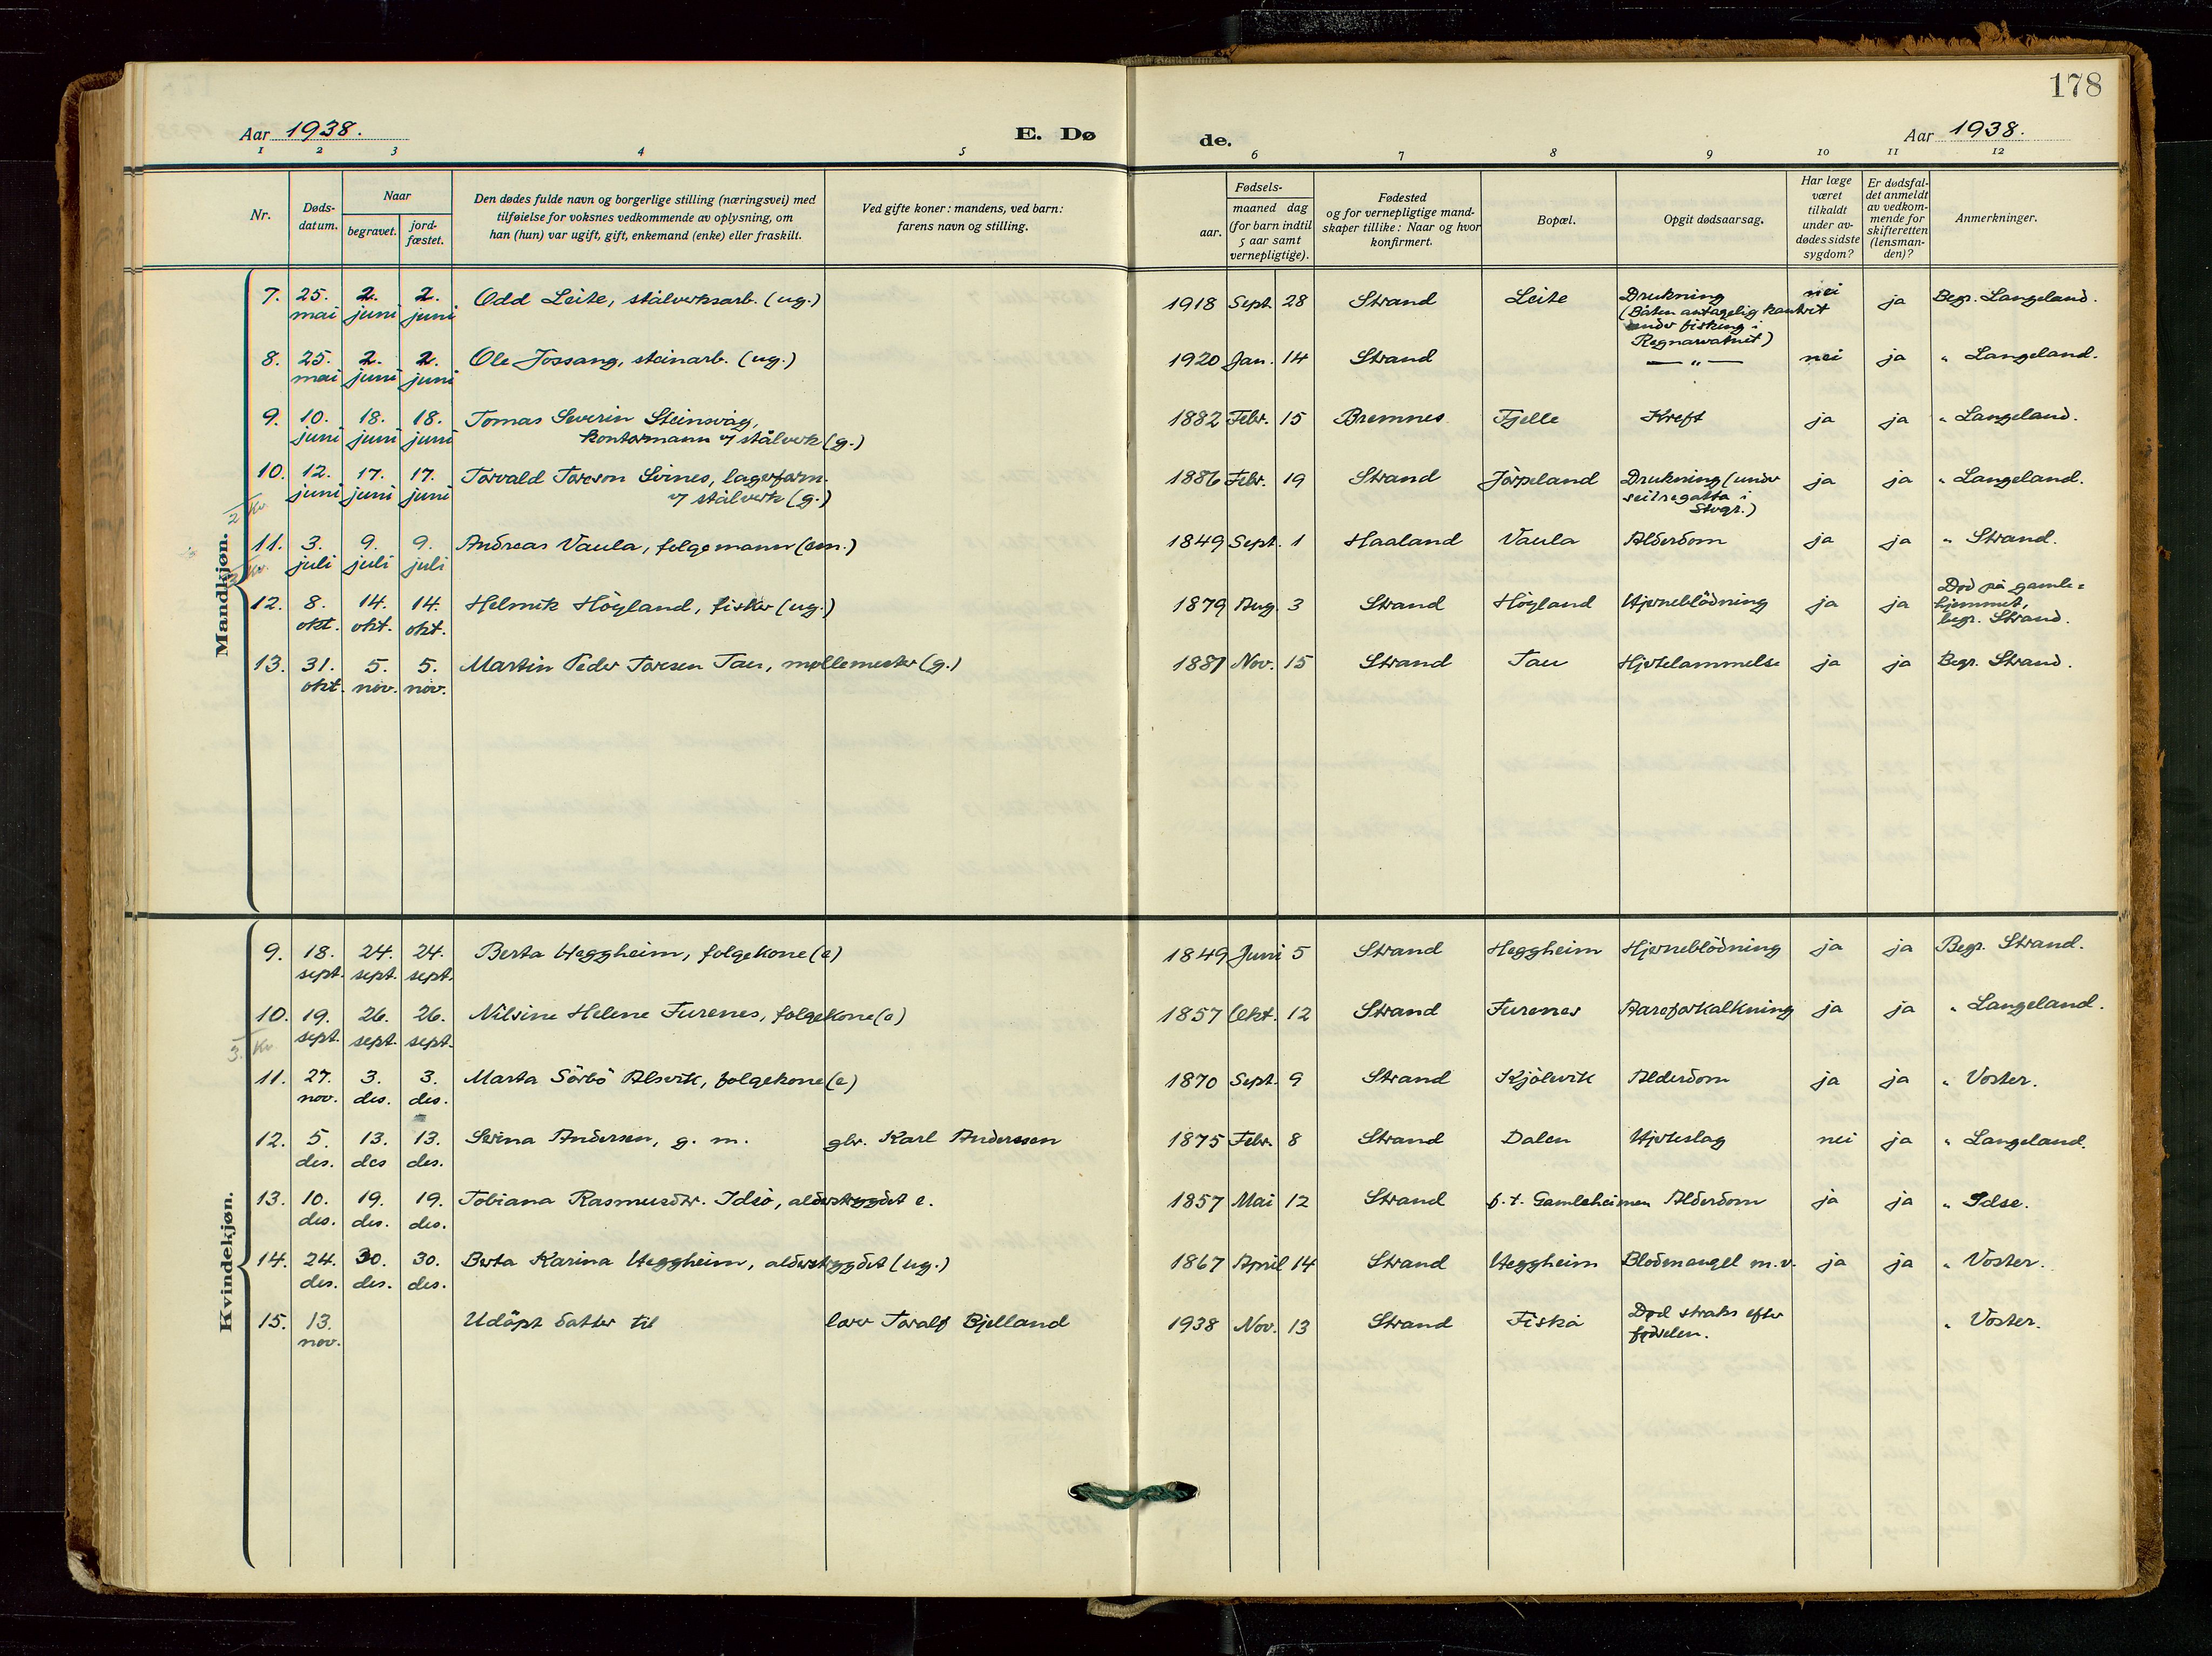 178
Aar 1938.
E. Dø
de.
Aar 1938.
1 2 3 4 5 6 7 8 9 10 11 12
Nr.
Døds-
datum.
Naar
begravet.
jord-
fæstet.
Den dødes fulde navn og borgerlige stilling (næringsvei) med
tilføielse for voksnes vedkommende av oplysning, om
han (hun) var ugift, gift, enkemand (enke) eller fraskilt.
Ved gifte koner: mandens, ved barn:
farens navn og stilling.
Fødsels-
aar.
maaned dag
(for barn indtil
5 aar samt
vernepligtige).
Fødested
og for vernepligtige mand-
skaper tillike: Naar og hvor
konfirmert.
Bopæl.
Opgit dødsaarsag.
Har læge
været
tilkaldt
under av-
dødes sidste
sygdom?
Er dødsfal-
det anmeldt
av vedkom-
mende for
skifteretten
(lensman-
den)?
Anmerkninger.
Mandkjøn.
7. 25. 2. 2. Odd Leite, stålverksarb. (ug.) 1918 Sept. 28 Strand Leite Drukning nei ja Begr. Langeland.
mai juni juni (Båten antagelig kantret
under fisking i
Regnarvatnet)
8. 25. 2. 2. Ole Jøssang, steinarb. (ug.) 1920 Jan. 14 Strand — " — nei ja " Langeland.
mai juni juni
9. 10. 18. 18. Tomas Severin Steinsvåg, 1882 Febr. 15 Bremnes Fjelle Kreft ja ja " Langeland.
juni juni juni kontormann v/ stålverk (g.)
10. 12. 17. 17. Torvald Toreson Svines, lagerform. 1886 Febr. 19 Strand Jørpeland Drukning (under ja ja " Langeland.
juni juni juni v/ stålverk (g.) seilregatta i
Stvgr.)
2 Kv.
11. 3. 9. 9. Andreas Vaula, folgemann (em.) 1849 Sept. 1 Haaland Vaula Alderdom ja ja " Strand.
juli juli juli
3 Kv.
12. 8. 14. 14. Helmik Högland, fisker (ug.) 1879 Aug. 3 Strand Högland Hjerneblödning ja ja Død på gamle=
okt. okt. okt. hjemmet,
begr. Strand.
13. 31. 5. 5. Martin Peder Toresen Tau, møllemester (g.) 1881 Nov. 15 Strand Tau Hjertelammelse ja ja Begr. Strand.
okt. nov. nov.
Kvindekjøn.
9. 18. 24. 24. Berta Heggheim, folgekone (e) 1849 Juni 5 Strand Heggheim Hjerneblödning ja ja Begr. Strand.
sept. sept. sept.
10. 19. 26. 26. Nilsine Helene Furenes, folgekone (e) 1857 Okt. 12 Strand Furenes Aareforkalkning ja ja " Langeland.
sept. sept. sept.
3. Kv.
11. 27. 3. 3. Marta Sörbö Alsvik, folgekone (e) 1870 Sept. 9 Strand Kjölevik Alderdom ja ja " Voster.
nov. des. des.
12. 5. 13. 13. Serina Andersen, g. m. gbr. Karl Anderssen 1875 Febr. 8 Strand Dalen Hjerteslag nei ja " Langeland.
des. des des.
13. 10. 19. 19. Tobiana Rasmusdtr. Idsö, alderstrygdet e. 1857 Mai 12 Strand f. t. Gamleheimen Alderdom ja ja " Idse.
des. des. des.
14. 24. 30. 30. Berta Karina Heggheim, alderstrygdet (ug.) 1867 April 14 Strand Heggheim Blodmangel m.v. ja ja " Voster.
des. des. des.
15. 13. Udöpt datter til Toralf Bjelland 1938 Nov. 13 Strand Fiskå Død straks efter " Voster.
nov. fødselen.